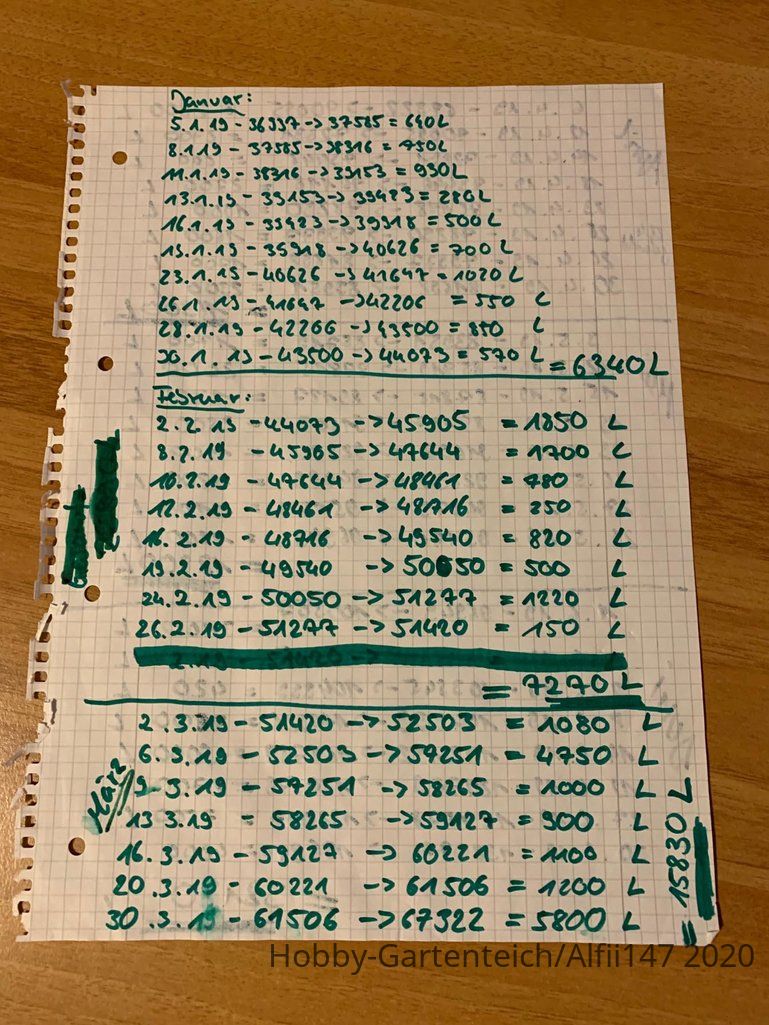 Januar:
5.1.19 - 36937 -> 37585 = 640L
8.1.19 - 37585 -> 38316 = 730L
11.1.19 - 38316 -> 39153 = 930L
13.1.19 - 39153 -> 39423 = 280L
16.1.19 - 39423 -> 39918 = 500L
19.1.19 - 39918 -> 40626 = 700L
23.1.19 - 40626 -> 41647 = 1020 L
26.1.19 - 41647 -> 42206 = 550 L
28.1.19 - 42206 -> 43500 = 850 L
30.1.19 - 43500 -> 44073 = 570 L
= 6340L
Februar:
2.2.19 - 44073 -> 45905 = 1850 L
8.2.19 - 45905 -> 47644 = 1700 L
10.2.19 - 47644 -> 48461 = 780 L
12.2.19 - 48461 -> 48716 = 250 L
16.2.19 - 48716 -> 49540 = 820 L
19.2.19 - 49540 -> 50050 = 500 L
24.2.19 - 50050 -> 51277 = 1220 L
26.2.19 - 51277 -> 51420 = 150 L
= 7270 L
März
2.3.19 - 51420 -> 52503 = 1080 L
6.3.19 - 52503 -> 57251 = 4750 L
9.3.19 - 57251 -> 58265 = 1000 L
13.3.19 = 58265 -> 59127 = 900 L
16.3.19 - 59127 -> 60221 = 1100 L
20.3.19 - 60221 -> 61506 = 1200 L
30.3.19 - 61506 -> 67322 = 5800 L
= 15830 L
Hobby-Gartenteich/Alfii147 2020